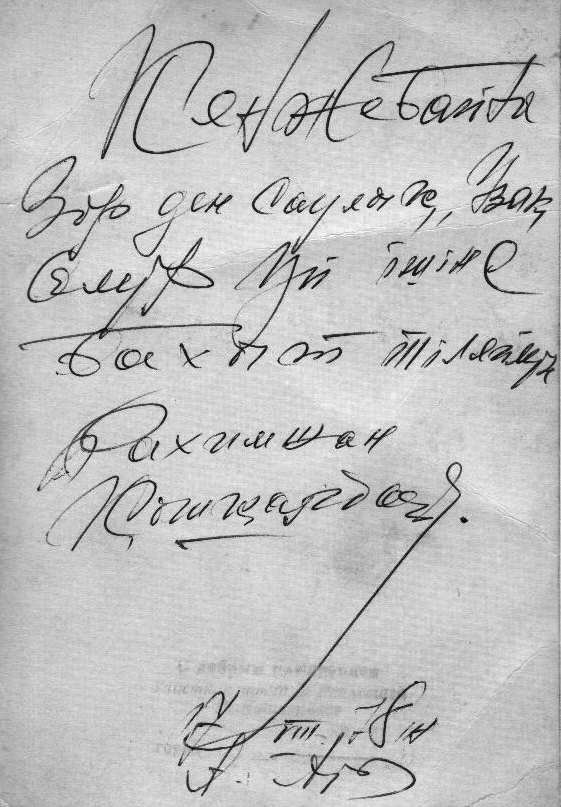 Кенжебайға
Зор ден саулық, Ұзақ
өмүр Үй ішіне
Бахыт тіляймін
Рахимжан
Қошқарбаев.
III. 78 ж